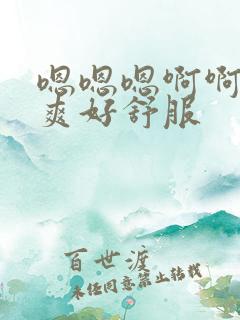 嗯嗯嗯啊啊
爽好舒服
百世渡
未经同意禁止转载